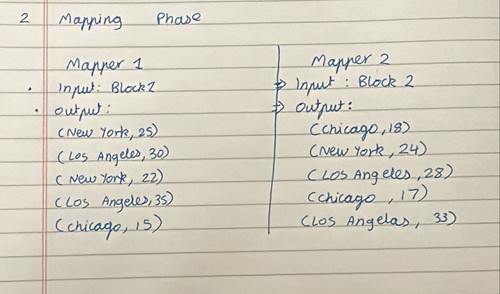 2 Mapping Phase
Mapper 1
• Input: Block 1
• Output:
(New York, 25)
(Los Angeles, 30)
(New York, 22)
(Los Angeles, 35)
(Chicago, 15)
Mapper 2
⇒ Input : Block 2
⇒ Output:
(Chicago, 18)
(New York, 24)
(Los Angeles, 28)
(Chicago , 17)
(Los Angelas, 33)